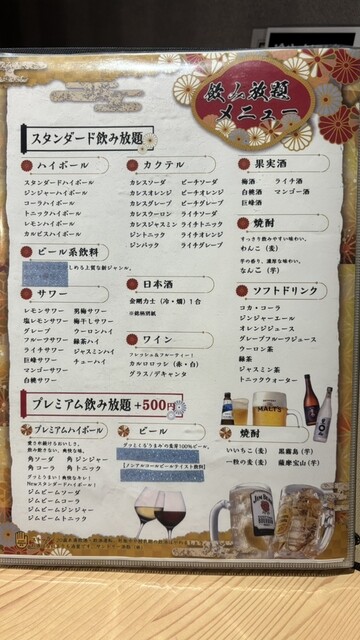 飲み放題
メニュー
スタンダード飲み放題
ハイボール
スタンダードハイボール
ジンジャーハイボール
コーラハイボール
トニックハイボール
レモンハイボール
カルピスハイボール
ビール系飲料
しめる上質な新ジャンル。
サワー
レモンサワー 男梅サワー
塩レモンサワー 梅干しサワー
グレープ ウーロンハイ
フルーツサワー 緑茶ハイ
ライチサワー ジャスミンハイ
巨峰サワー チューハイ
マンゴーサワー
白桃サワー
カクテル
カシスソーダ ピーチソーダ
カシスオレンジ ピーチオレンジ
カシスグレープ ピーチグレープ
カシスウーロン ライチソーダ
カシスジャスミン ライチトニック
ジントニック ライチオレンジ
ジンバック ライチグレープ
日本酒
金剛力士(冷・燗)1合
※銘柄別紙
ワイン
フレッシュ&フルーティー!
カルロロッシ(赤・白)
グラス/デキャンタ
果実酒
梅酒 ライチ酒
白桃酒 マンゴー酒
巨峰酒
焼酎
すっきり飲みやすい味わい。
わんこ(麦)
芋の香り、濃厚な味わい。
なんこ(芋)
ソフトドリンク
コカ・コーラ
ジンジャーエール
オレンジジュース
グレープフルーツジュース
ウーロン茶
緑茶
ジャスミン茶
トニックウォーター
プレミアム飲み放題 +500円
プレミアムハイボール
角ソーダ 角ジンジャー
角コーラ 角トニック
グッとうまい!爽快なキレ!
Newスタンダードハイボール!
ジムビームソーダ
ジムビームコーラ
ジムビームジンジャー
ジムビームトニック
ビール
【ノンアルコールビールテイスト飲料】
焼酎
いいちこ(麦) 黒霧島(芋)
一粒の麦(麦) 薩摩宝山(芋)
MALT'S
JIM BEAM